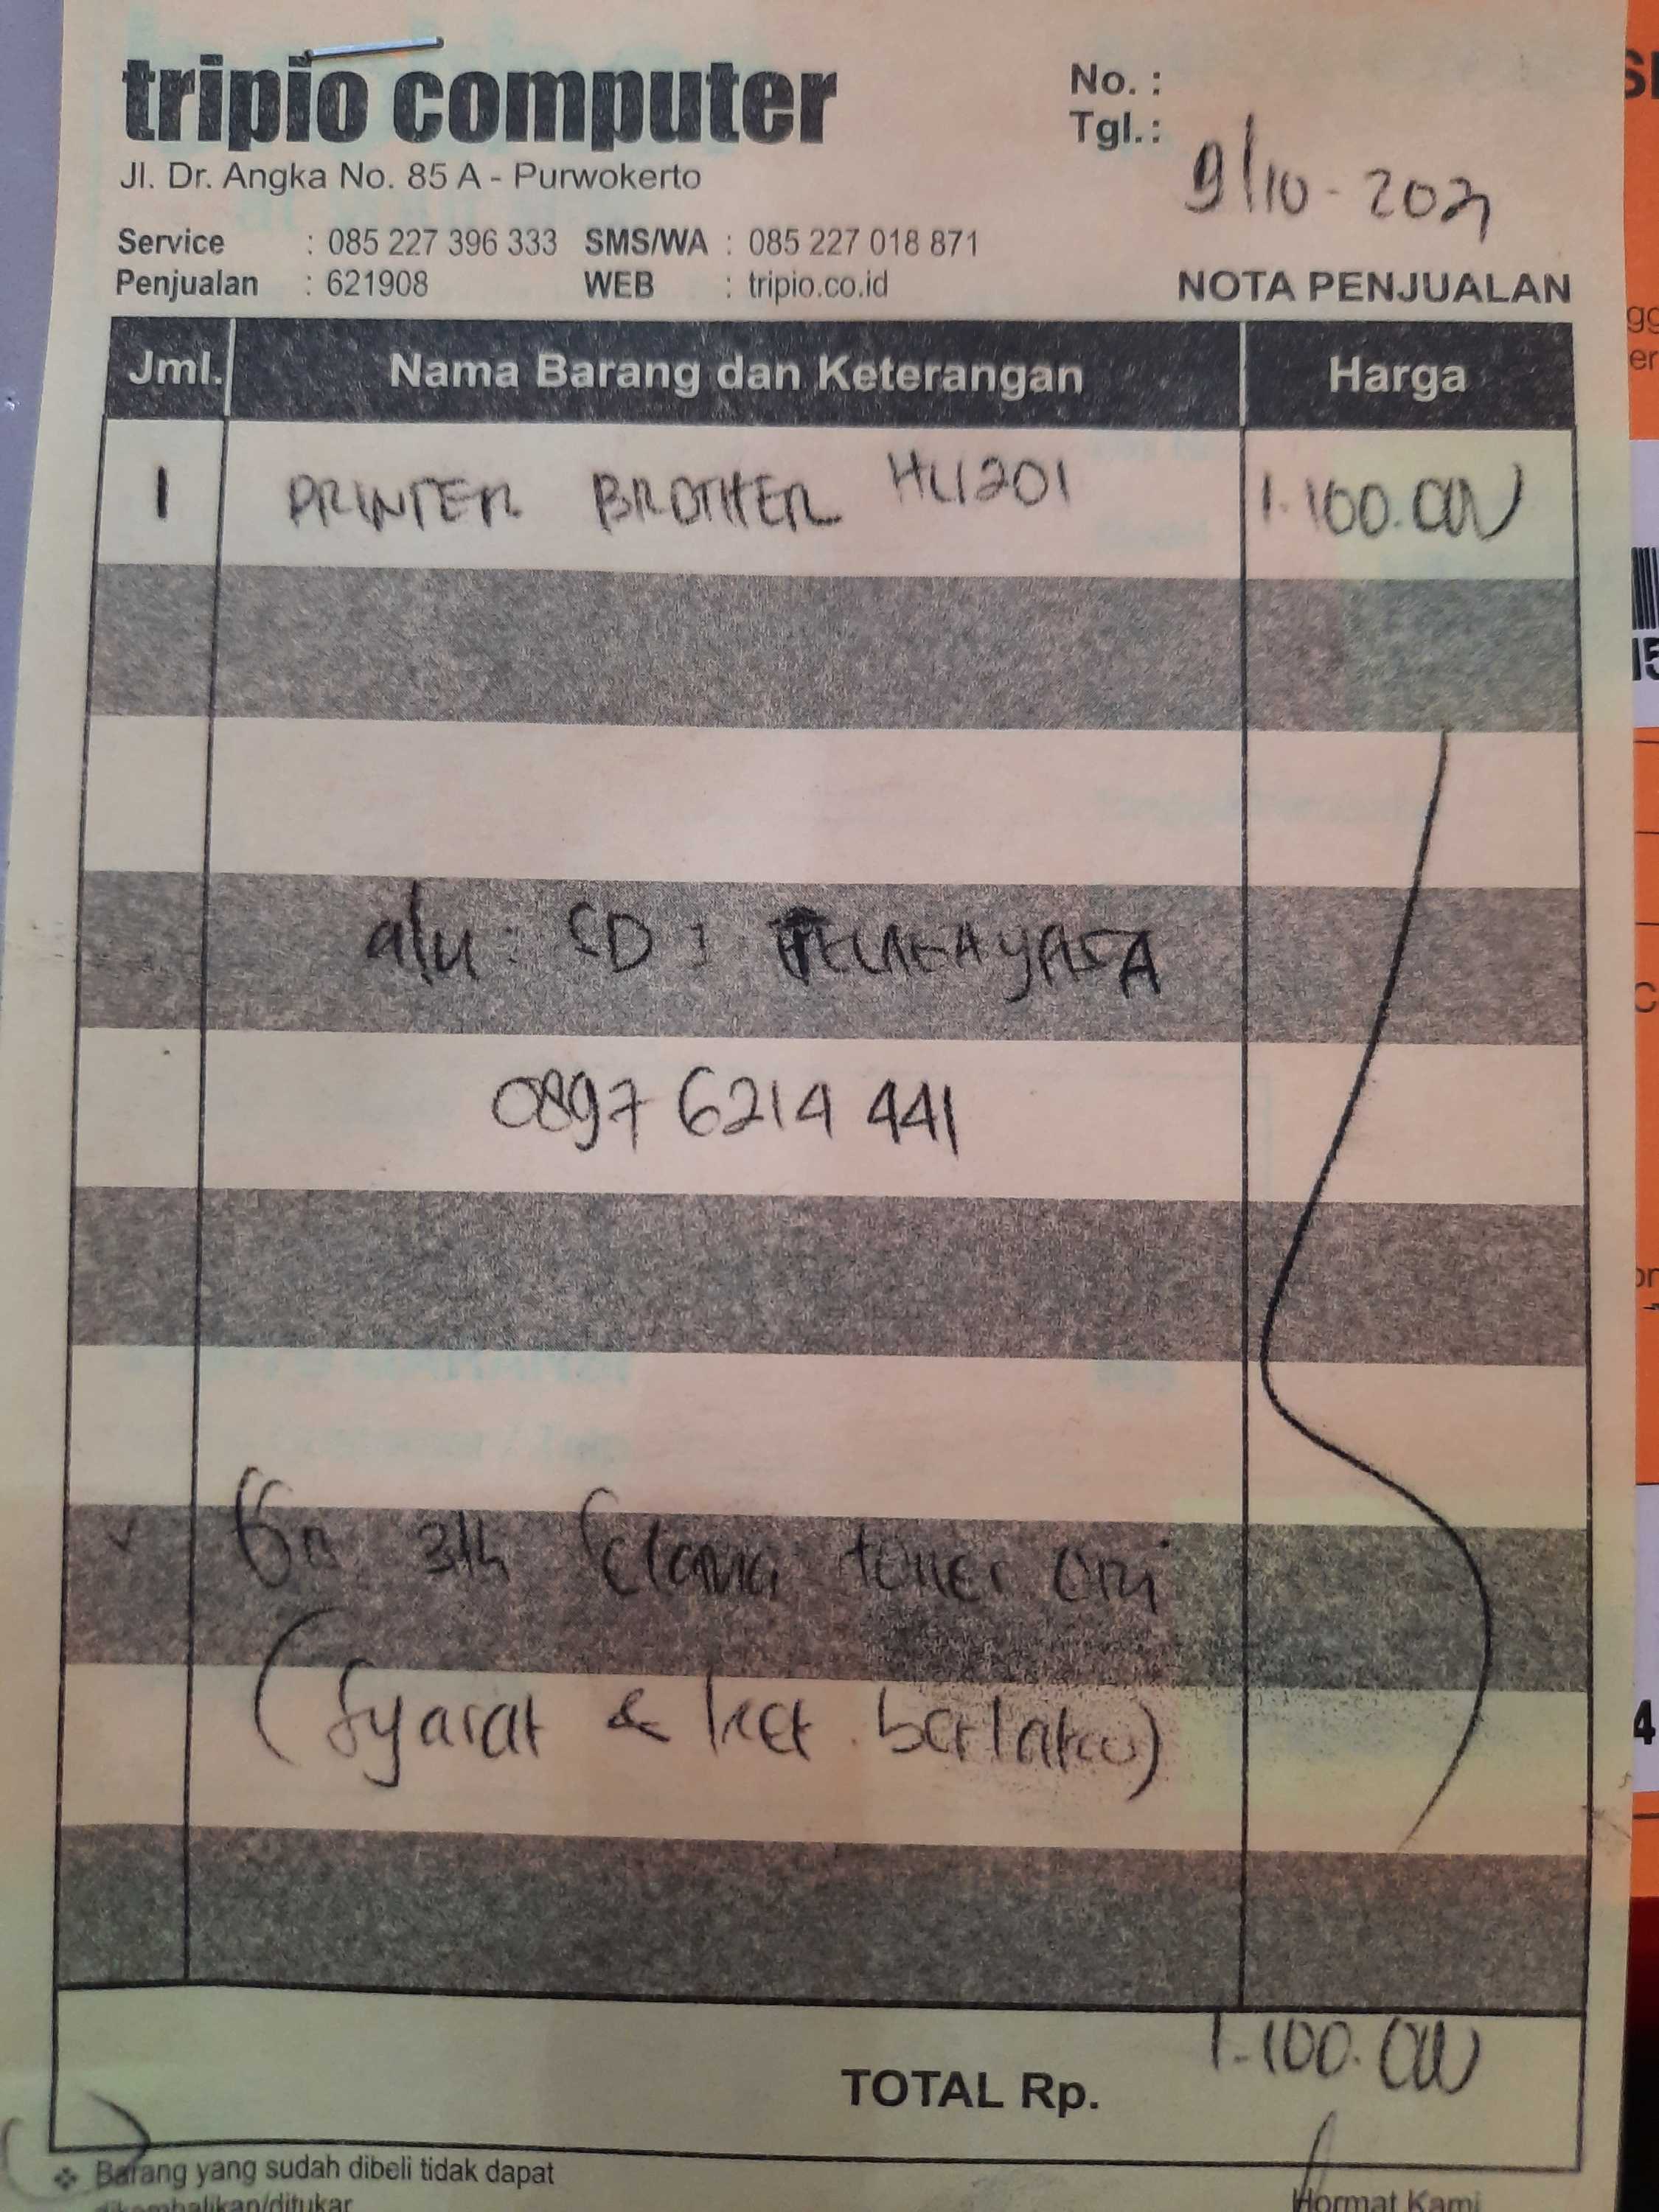 tripio computer
Jl. Dr. Angka No. 85 A - Purwokerto
Service : 085 227 396 333 SMS/WA : 085 227 018 871
Penjualan : 621908 WEB : tripio.co.id
No. :
Tgl. : 9/10-2021
NOTA PENJUALAN
Jml. Nama Barang dan Keterangan Harga
1 PRINTER BROTHER HL1201 1.100.000
a/n : SD 1
0897 6214 441
Gn 3th selama toner ori
(syarat & ket. berlaku)
TOTAL Rp. 1.100.000
❖ Barang yang sudah dibeli tidak dapat
dikembalikan/ditukar
Hormat Kami